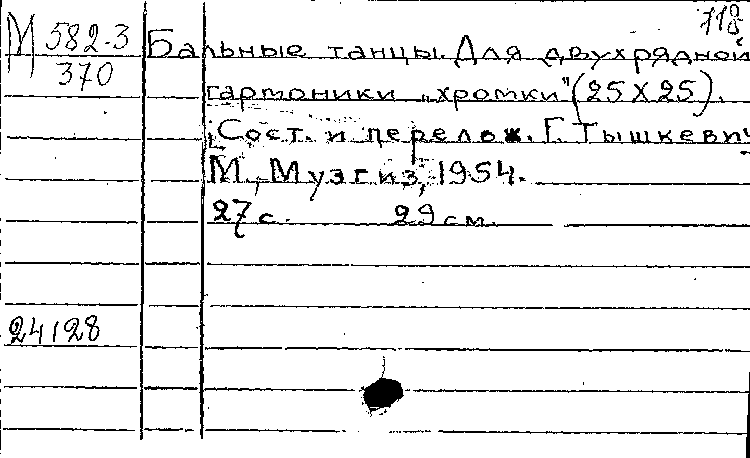 718
М 582-3
370
Бальные танцы. Для двухрядной
гармоники „хромки" (25 X 25).
[Сост. и перелож. Г. Тышкевич
М., Музгиз, 1954.
27 с. 29 см.
24128